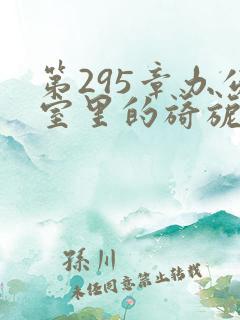 第295章办公
室里的旖旎
孫川
未经同意禁止转载